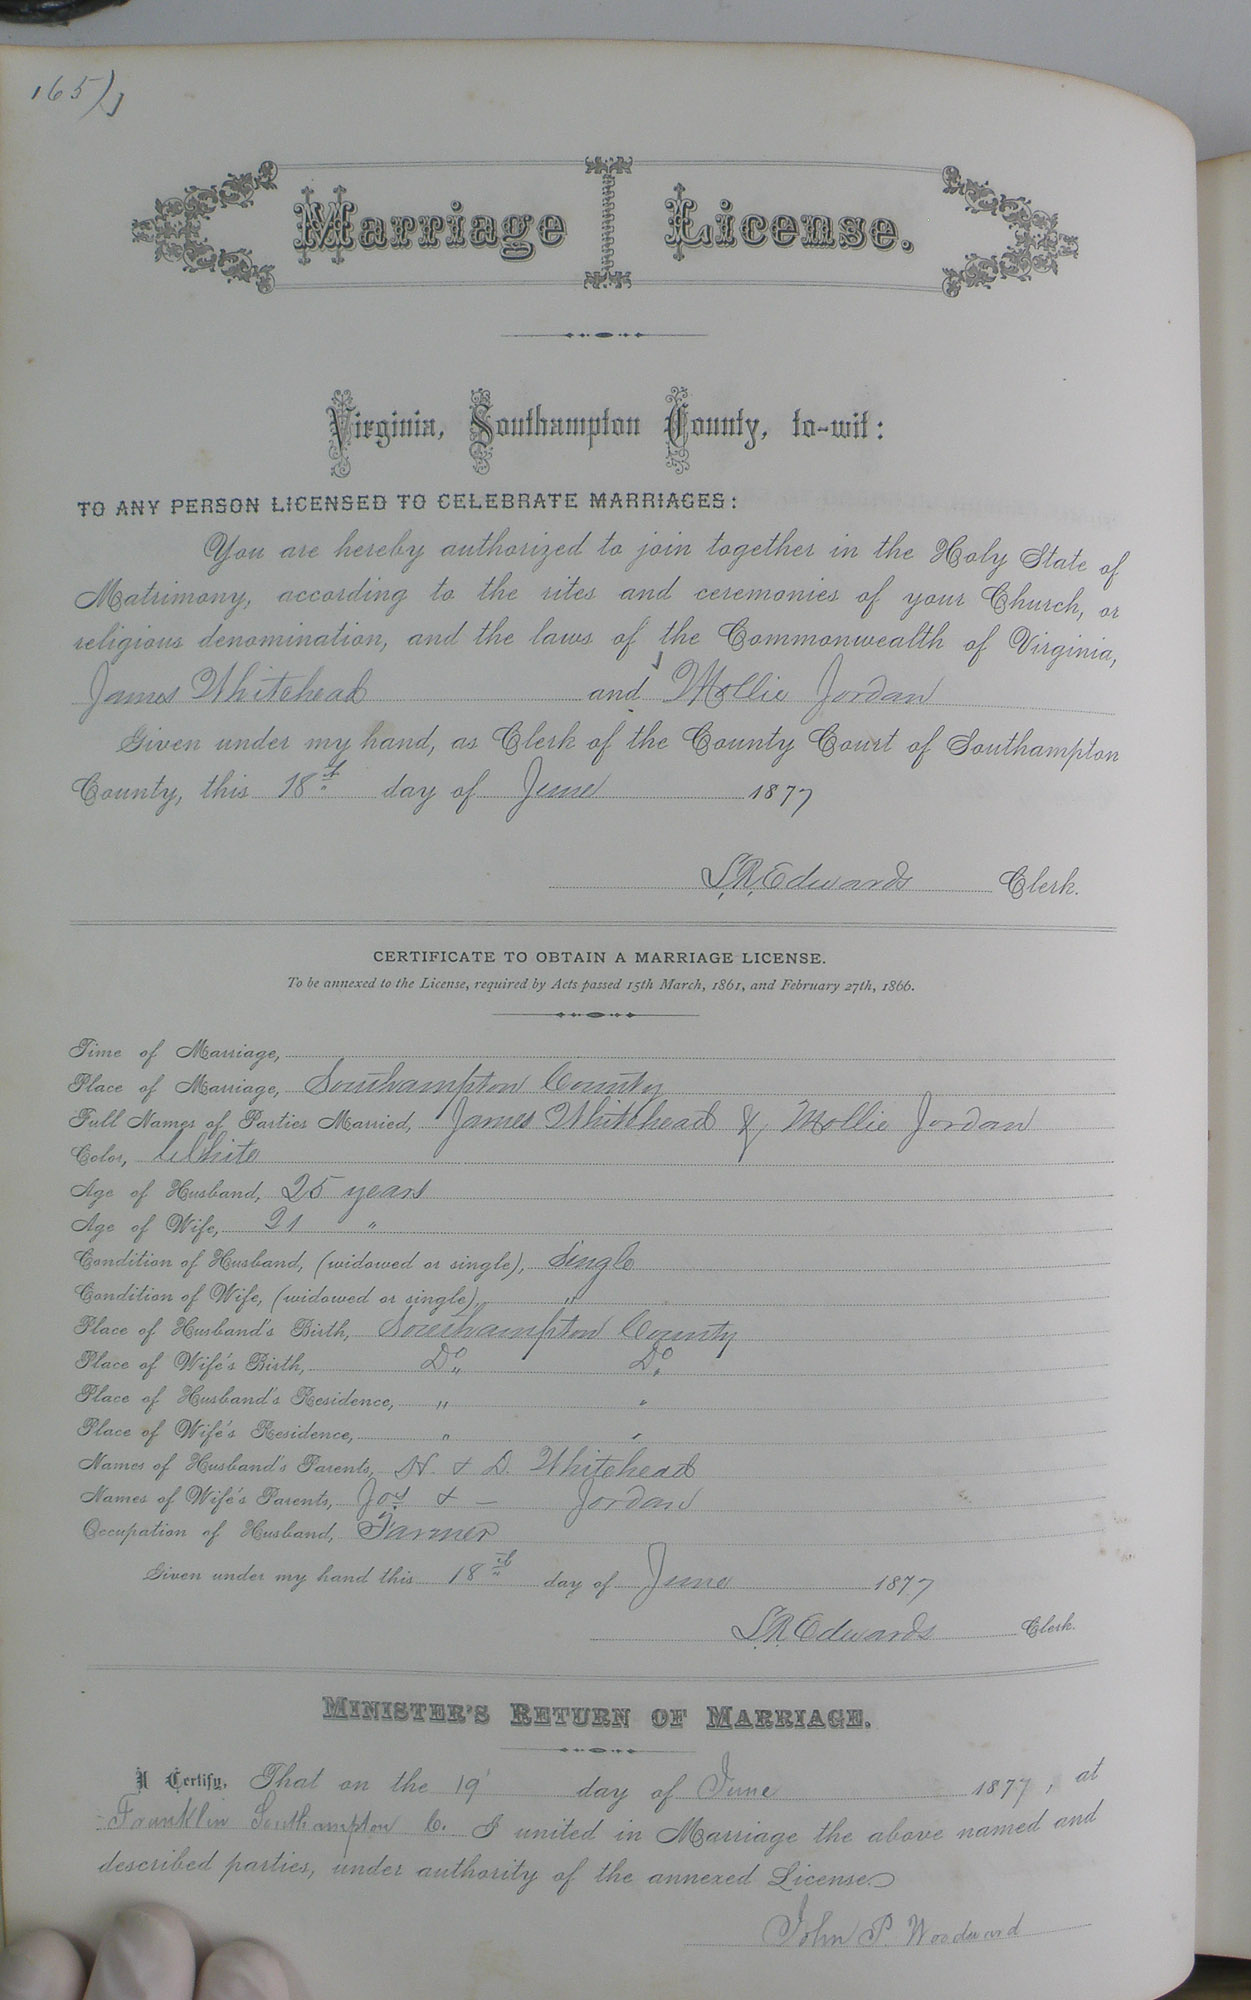 165)
Marriage License.
Virginia, Southampton County, to-wit:
TO ANY PERSON LICENSED TO CELEBRATE MARRIAGES:
You are hereby authorized to join together in the Holy State of
Matrimony, according to the rites and ceremonies of your Church, or
religious denomination, and the laws of the Commonwealth of Virginia,
James Whitehead and Mollie Jordan
Given under my hand, as Clerk of the County Court of Southampton
County, this 18th day of June 1877
L.R. Edwards Clerk.
CERTIFICATE TO OBTAIN A MARRIAGE LICENSE.
To be annexed to the License, required by Acts passed 15th March, 1861, and February 27th, 1866.
Time of Marriage,
Place of Marriage, Southampton County
Full Names of Parties Married, James Whitehead & Mollie Jordan
Color, White
Age of Husband, 25 years
Age of Wife, 21 "
Condition of Husband, (widowed or single), Single
Condition of Wife, (widowed or single), "
Place of Husband's Birth, Southampton County
Place of Wife's Birth, Do Do
Place of Husband's Residence, " "
Place of Wife's Residence, " "
Names of Husband's Parents, N. & D. Whitehead
Names of Wife's Parents, Jos & — Jordan
Occupation of Husband, Farmer
Given under my hand this 18th day of June 1877
L.R. Edwards Clerk.
MINISTER'S RETURN OF MARRIAGE.
I Certify, That on the 19 day of June 1877, at
Franklin Southampton C. I united in Marriage the above named and
described parties, under authority of the annexed License.
John P. Woodward